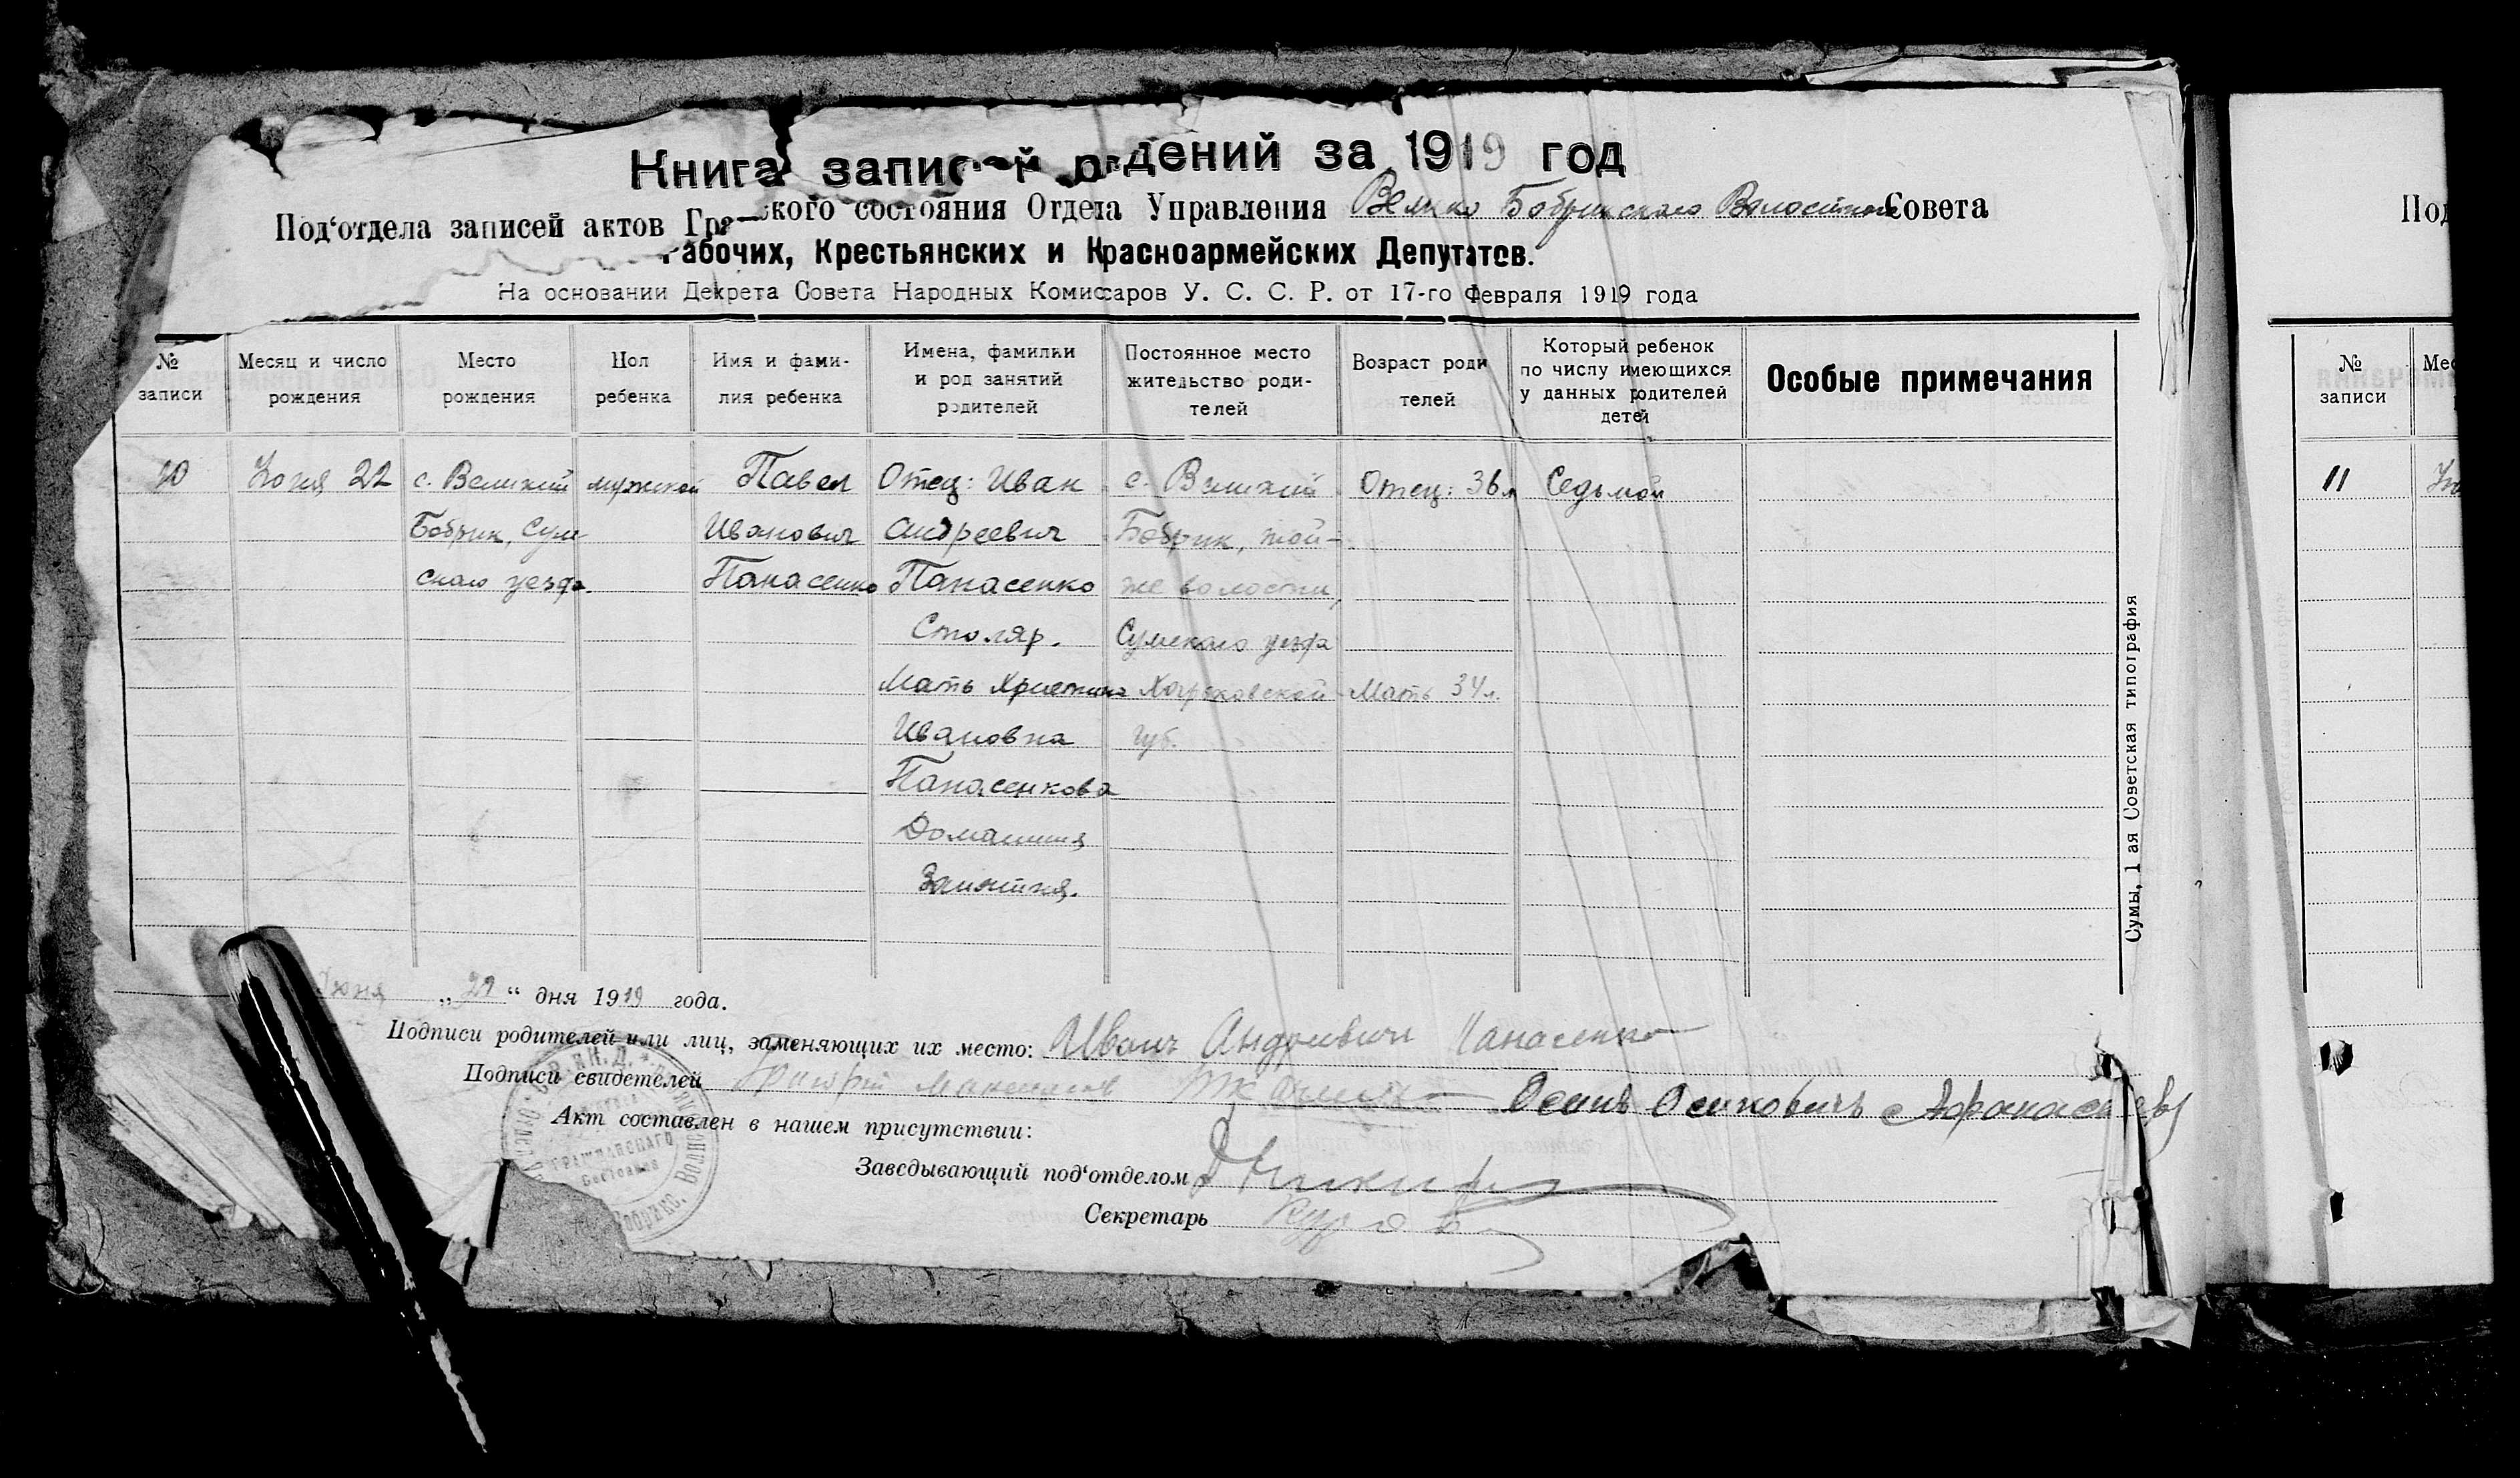 Книга записей рождений за 1919 год
Под‘отдела записей актов Гражданского состояния Отдела Управления Велико Бобрикского Волостного Совета
Рабочих, Крестьянских и Красноармейских Депутатов.
На основании Декрета Совета Народных Комиссаров У. С. С. Р. от 17-го Февраля 1919 года
№ записи
Месяц и число рождения
Место рождения
Пол ребенка
Имя и фами-
лия ребенка
Имена, фамилки
и род занятий
родителей
Постоянное место
жительство роди-
телей
Возраст роди
телей
Который ребенок
по числу имеющихся
у данных родителей
детей
Особые примечания
10
Июня 22
с. Великий
Бобрик, Сум-
скаго уезда
мужской
Павел
Иванович
Панасенко
Отец: Иван
Андреевич
Панасенко
Столяр.
Мать Христина
Ивановна
Панасенкова
Домашния
Занятия.
с. Великий
Бобрик, той-
же волости,
Сумскаго уезда
Харьковской
губ.
Отец: 36 л
Мать 34 л.
Седьмой
Сумы, 1 ая Советская типография
Июня „29“ дня 1919 года.
Подписи родителей или лиц, заменяющих их место: Иванъ Андреевичъ Панасенко
Подписи свидетелей Григорій Осипъ Осиповичъ Афанасьевъ
Акт составлен в нашем присутствии:
Заведывающий под‘отделом
Секретарь
ГРАЖДАНСКАГО
Состояния
Под
№ записи
Мес
11